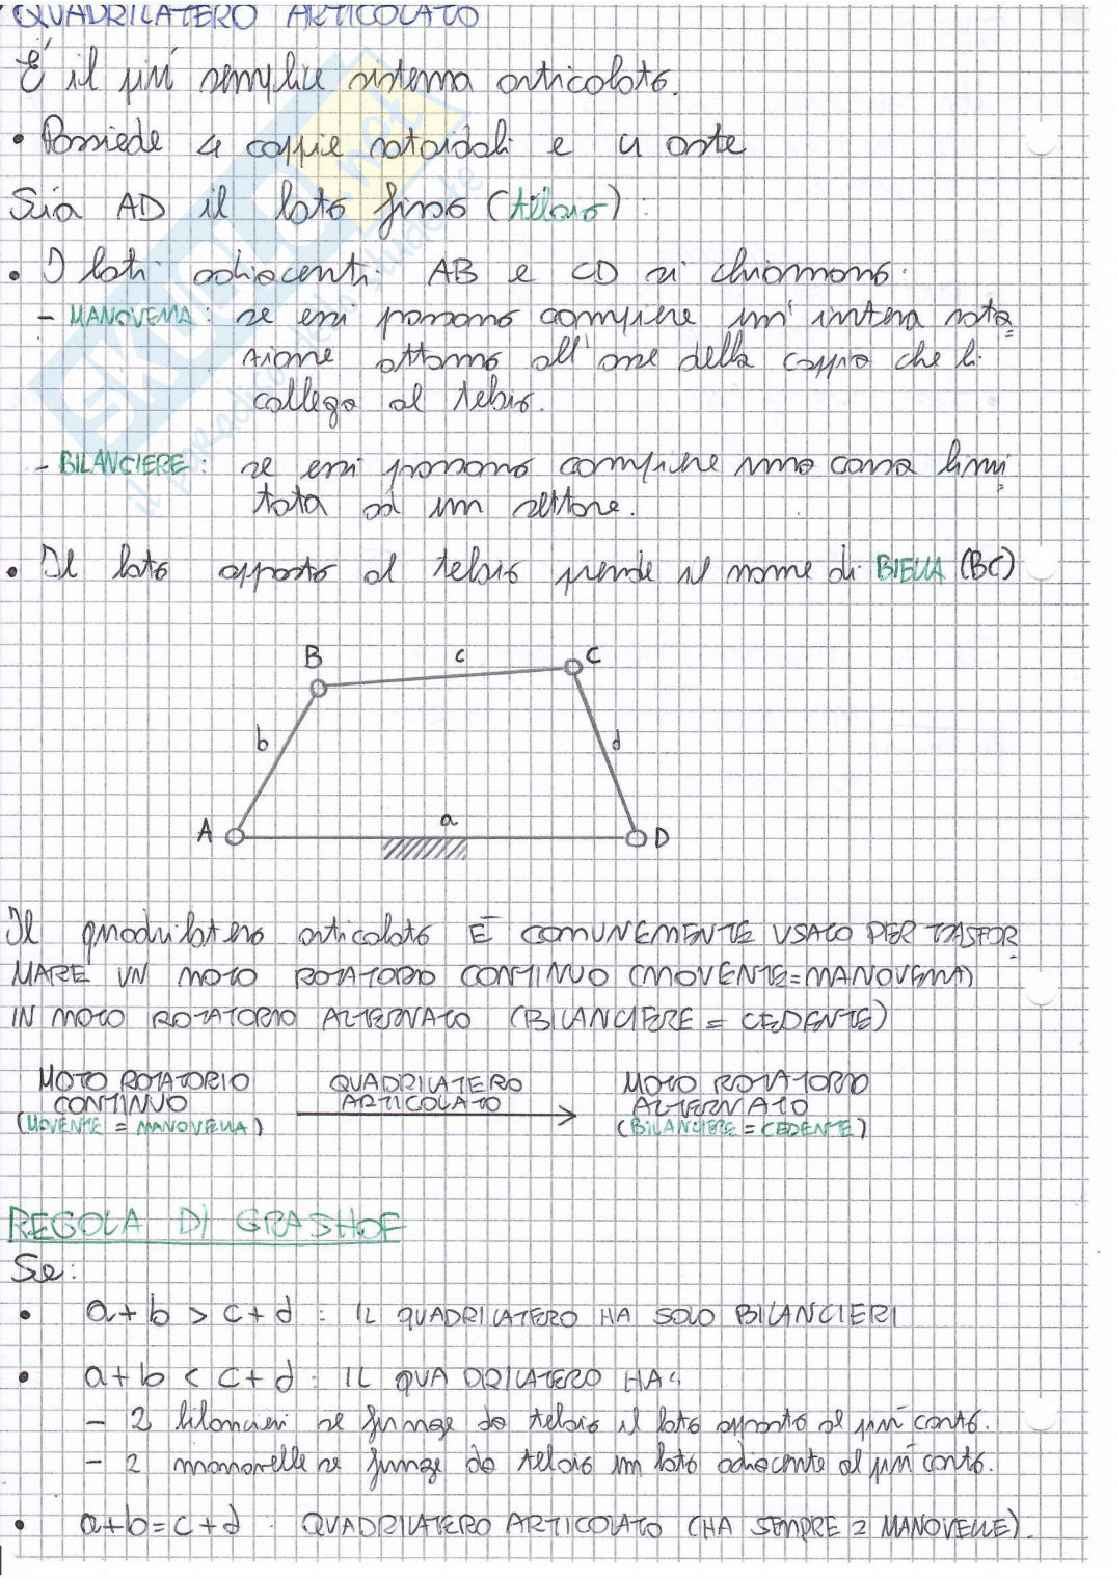 QUADRILATERO ARTICOLATO
É il più semplice sistema articolato.
• Possiede 4 coppie rotoidali e 4 aste
Sia AD il lato fisso (telaio):
• I lati adiacenti AB e CD si chiamano:
- MANOVELLA: se essi possono compiere un'intera rota=
zione attorno all'asse della coppia che li
collega al telaio.
- BILANCIERE: se essi possono compiere una corsa limi
tata ad un settore.
• Il lato opposto al telaio prende il nome di BIELLA (BC)
B c C
b d
A a D
Il quadrilatero articolato È COMUNEMENTE USATO PER TRASFOR
MARE UN MOTO ROTATORIO CONTINUO (MOVENTE=MANOVELLA)
IN MOTO ROTATORIO ALTERNATO (BILANCIERE = CEDENTE)
MOTO ROTATORIO QUADRILATERO MOTO ROTATORIO
CONTINUO ARTICOLATO ALTERNATO
(MOVENTE = MANOVELLA) (BILANCIERE = CEDENTE)
REGOLA DI GRASHOF
Se:
• a+b > c+d : IL QUADRILATERO HA SOLO BILANCIERI
• a+b < c+d : IL QUADRILATERO HA:
- 2 bilancieri se funge da telaio il lato opposto al più corto.
- 2 manovelle se funge da telaio un lato adiacente al più corto.
• a+b=c+d : QUADRILATERO ARTICOLATO (HA SEMPRE 2 MANOVELLE).
SKUOLA.net